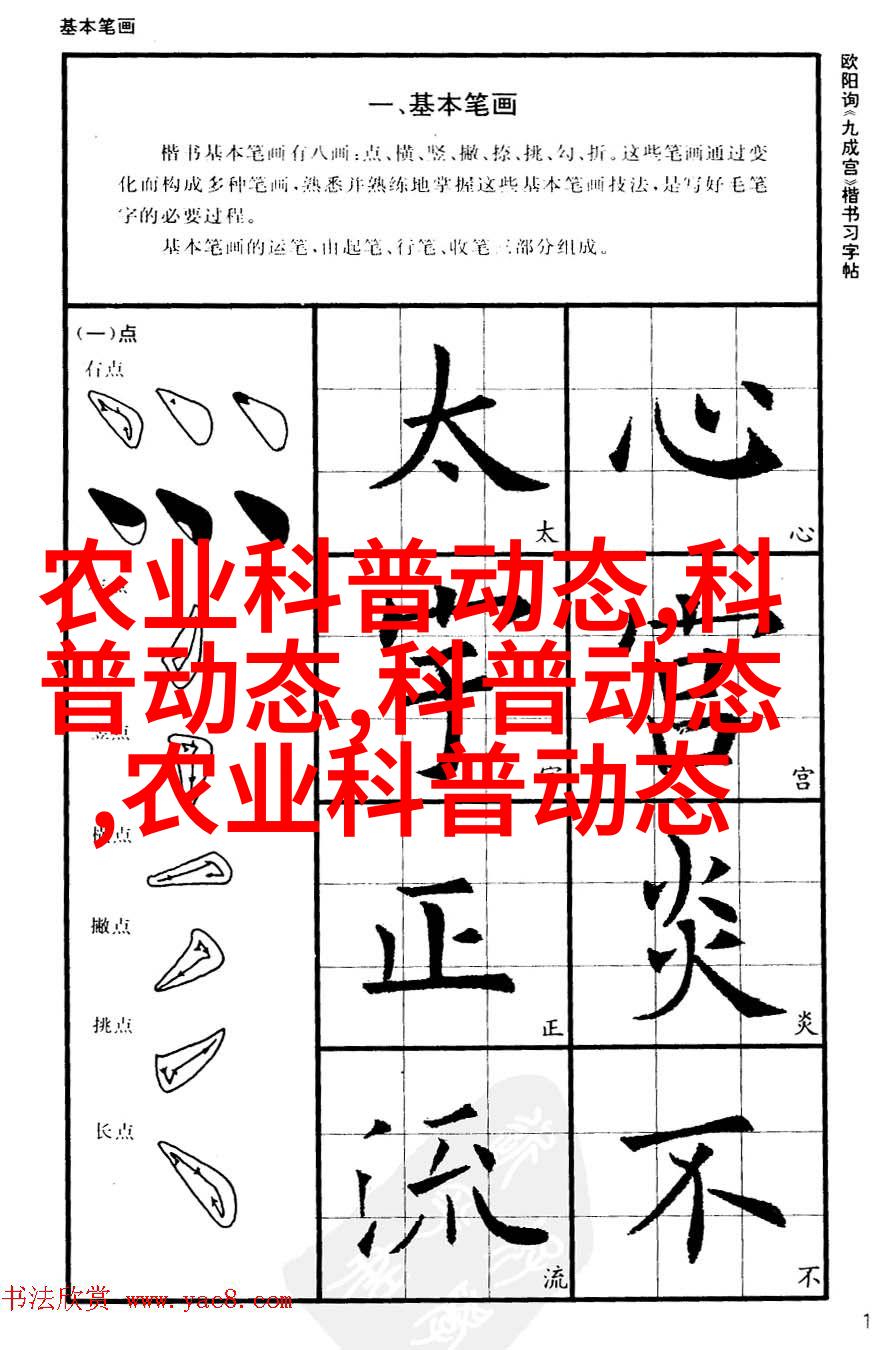 基本笔画
欧阳询《九成宫》楷书习字帖
一、基本笔画
楷书基本笔画有八画：点、横、竖、撇、捺、挑、勾、折。这些笔画通过变
化而构成多种笔画，熟悉并熟练地掌握这些基本笔画技法，是写好毛笔
字的必要过程。
基本笔画的运笔，由起笔、行笔、收笔三部分组成。
(一)点
右点
太
太
心
心
农业科普动态,科
普动态,科普动态
,农业科普动态
竖点
宫
宫
横点
撇点
正
正
炎
炎
挑点
长点
流
流
不
不
书法欣赏 www.yac8.com
1